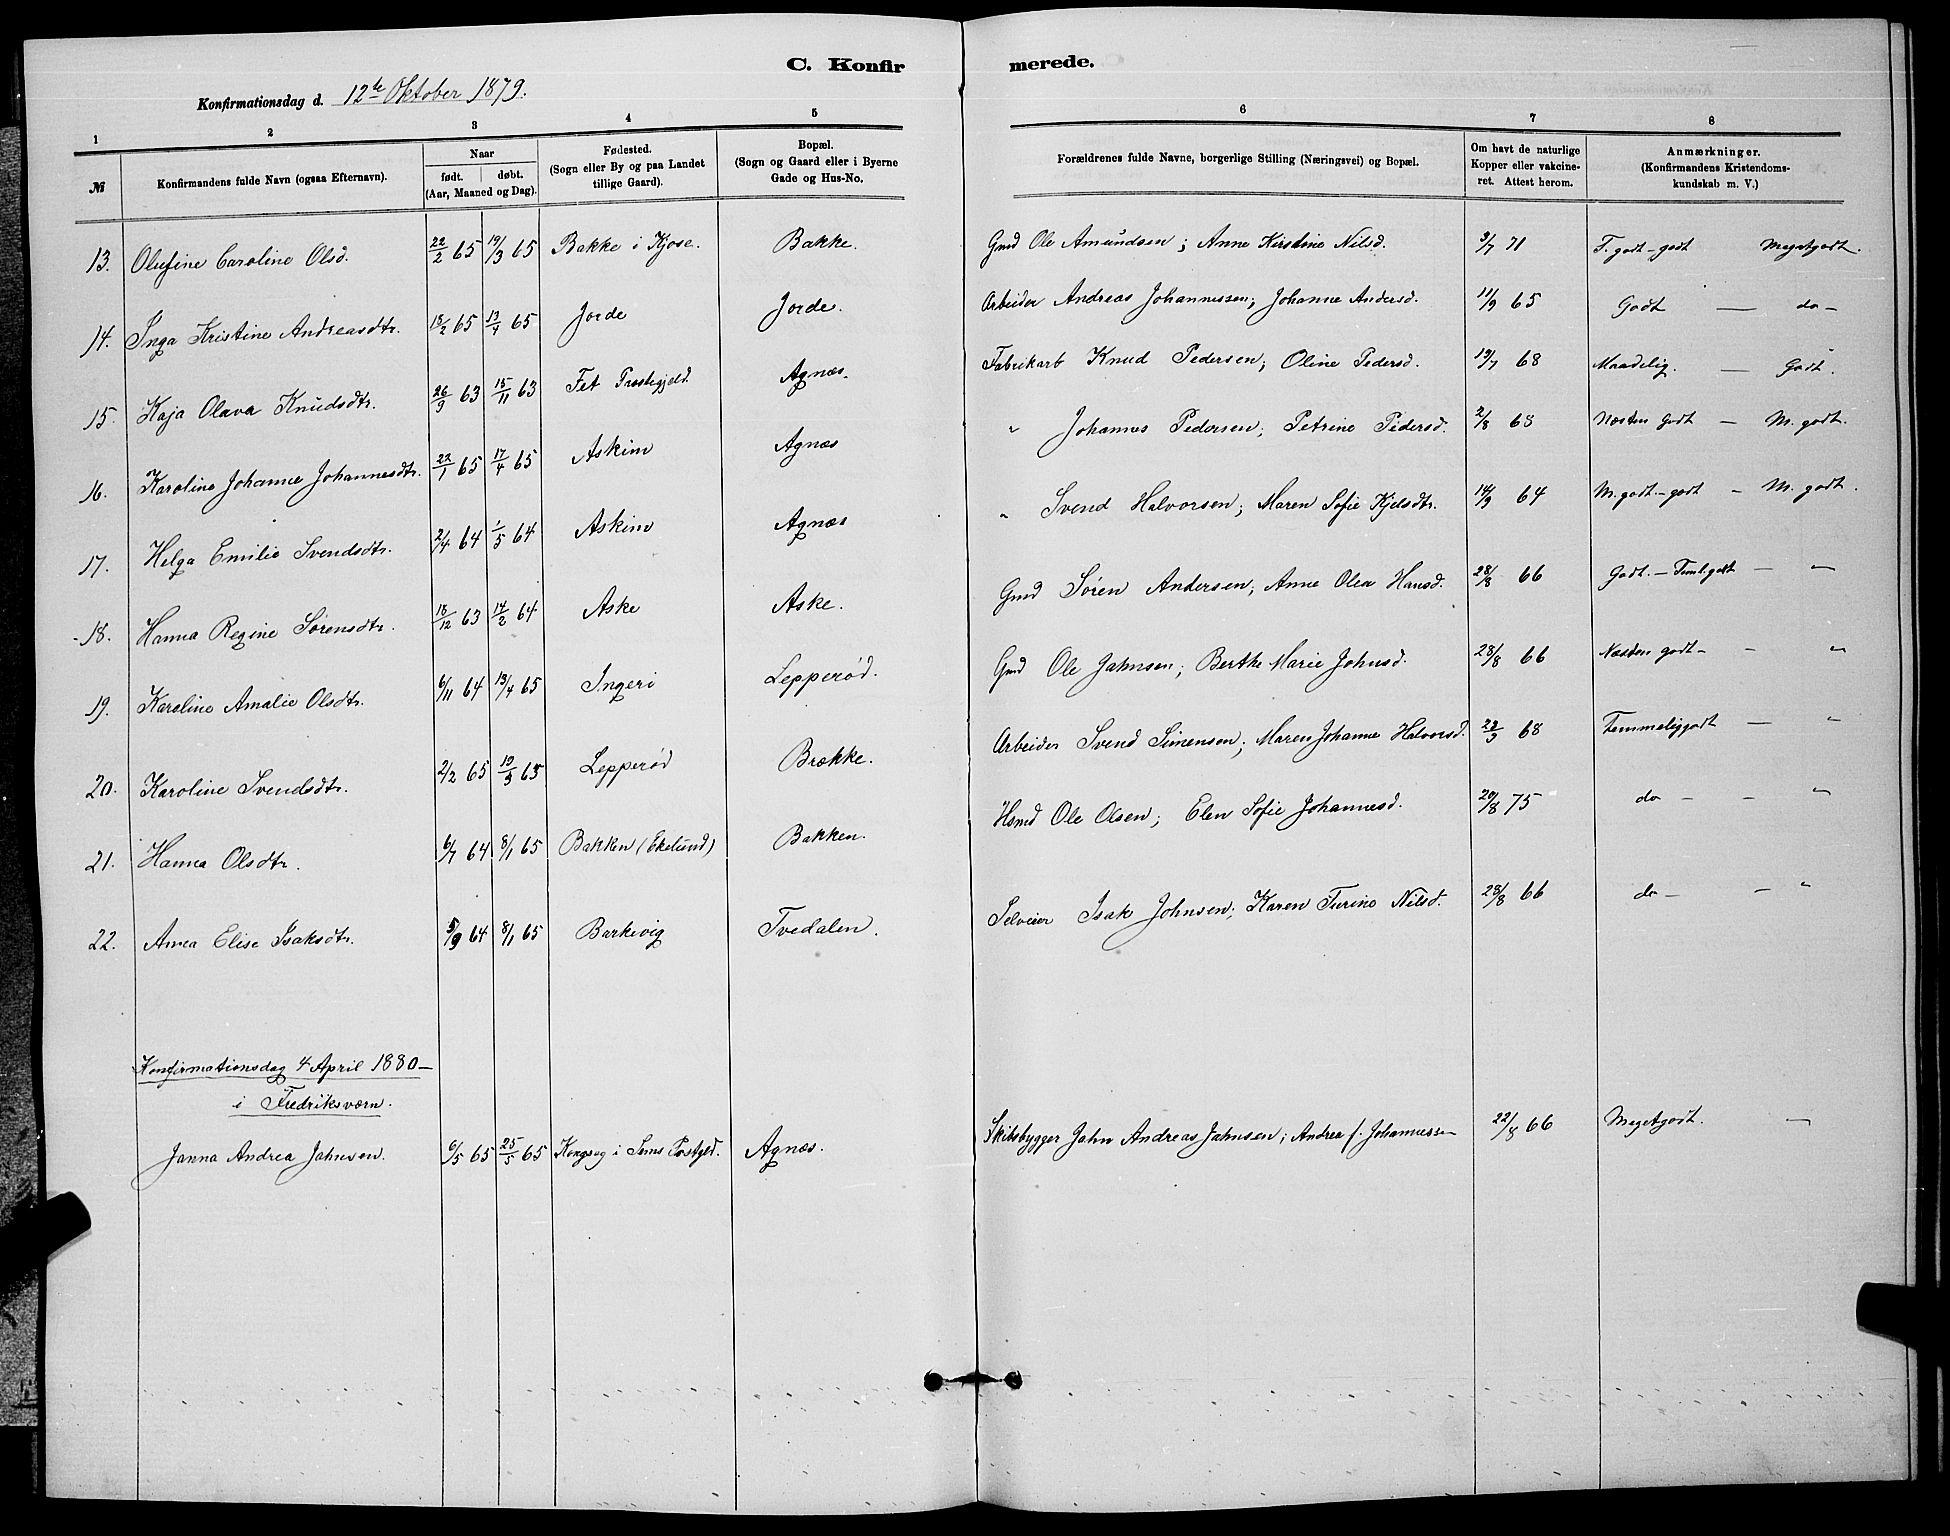 C. Konfirmerede.
Konfirmationsdag d. 12te Oktober 1879.
1 2 3 4 5 6 7 8
№ Konfirmandens fulde Navn (ogsaa Efternavn). Naar født. døbt. (Aar, Maaned og Dag). Fødested. (Sogn eller By og paa Landet tillige Gaard). Bopæl. (Sogn og Gaard eller i Byerne Gade og Hus-No. Forældrenes fulde Navne, borgerlige Stilling (Næringsvei) og Bopæl. Om havt de naturlige Kopper eller vakcineret. Attest herom. Anmærkninger. (Konfirmandens Kristendomskundskab m. V.)
13. Olufine Caroline Olsd. 22/2 65 19/3 65 Bakke i Kjose. Bakke. Gmd Ole Amundsen; Anne Kirstine Nilsd. 3/7 71 T. godt - godt Megetgodt.
14. Inga Kristine Andreasdtr. 18/2 65 13/4 65 Jorde Jorde. Arbeider Andreas Johannessen; Johanne Andersd. 11/9 65 Godt — do —
15. Kaja Olava Knudsdtr. 26/9 63 15/11 63 Fet Præstegjeld. Agnæs. Fabrikarb Knud Pedersen; Oline Pedersd. 19/7 68 Maadelig. — Godt.
16. Karoline Johanne Johannesdtr. 22/1 65 17/4 65 Askim Agnæs " Johannes Pedersen; Petrine Pedersd. 2/8 68 Næsten godt — M. godt.
17. Helga Emilie Svendsdtr. 2/4 64 1/5 64 Askim Agnæs " Svend Halvorsen; Maren Sofie Kjelsdtr. 14/9 64 M. godt - godt — M. godt.
18. Hanna Regine Sørensdtr. 18/12 63 14/2 64 Aske Aske. Gmd Søren Andersen; Anne Olea Hansd. 28/8 66 Godt. — Teml. godt — "
19. Karoline Amalie Olsdtr. 6/11 64 13/4 65 Ingeri Lepperød. Gmd Ole Jahnsen; Berthe Marie Johnsd. 28/8 66 Næsten godt — — "
20. Karoline Svendsdtr. 2/2 65 19/3 65 Lepperød Brække. Arbeider Svend Simensen; Maren Johanne Halvorsd. 22/9 68 Temmeliggodt — "
21. Hanna Olsdtr. 6/7 64 8/1 65 Bakken (Ekelund) Bakken. Hsmd Ole Olsen; Elen Sofie Johannesd. 20/8 75 do — — "
22. Anna Elise Isaksdtr. 5/9 64 8/1 65 Barkevig Tvedalen. Selveier Isak Johnsen; Karen Turine Nilsd. 28/8 66 do — — "
Konfirmationsdag 4 April 1880 —
i Fredriksværn.
Janna Andrea Jahnsen. 6/5 65 25/5 65 i Sems Agnæs. Skibsbygger Jahn Andreas Jahnsen; Andrea f. Johannessen 22/8 66 Megetgodt. —